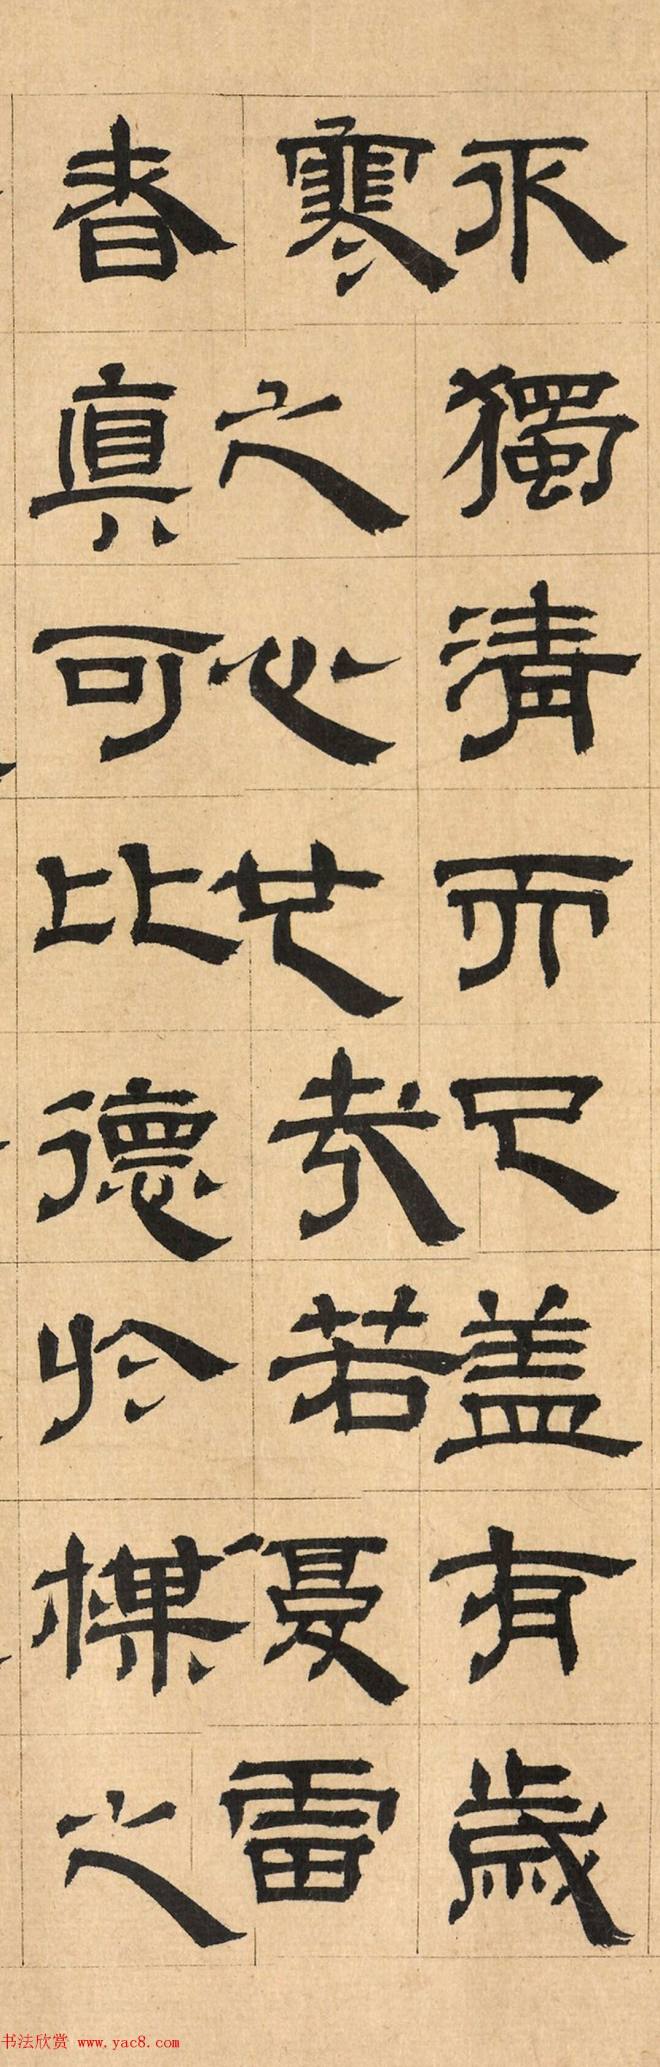 不獨清而已盖有歲
寒之心其求若憂雷
者真可比德於楳之
书法欣赏 www.yac8.com